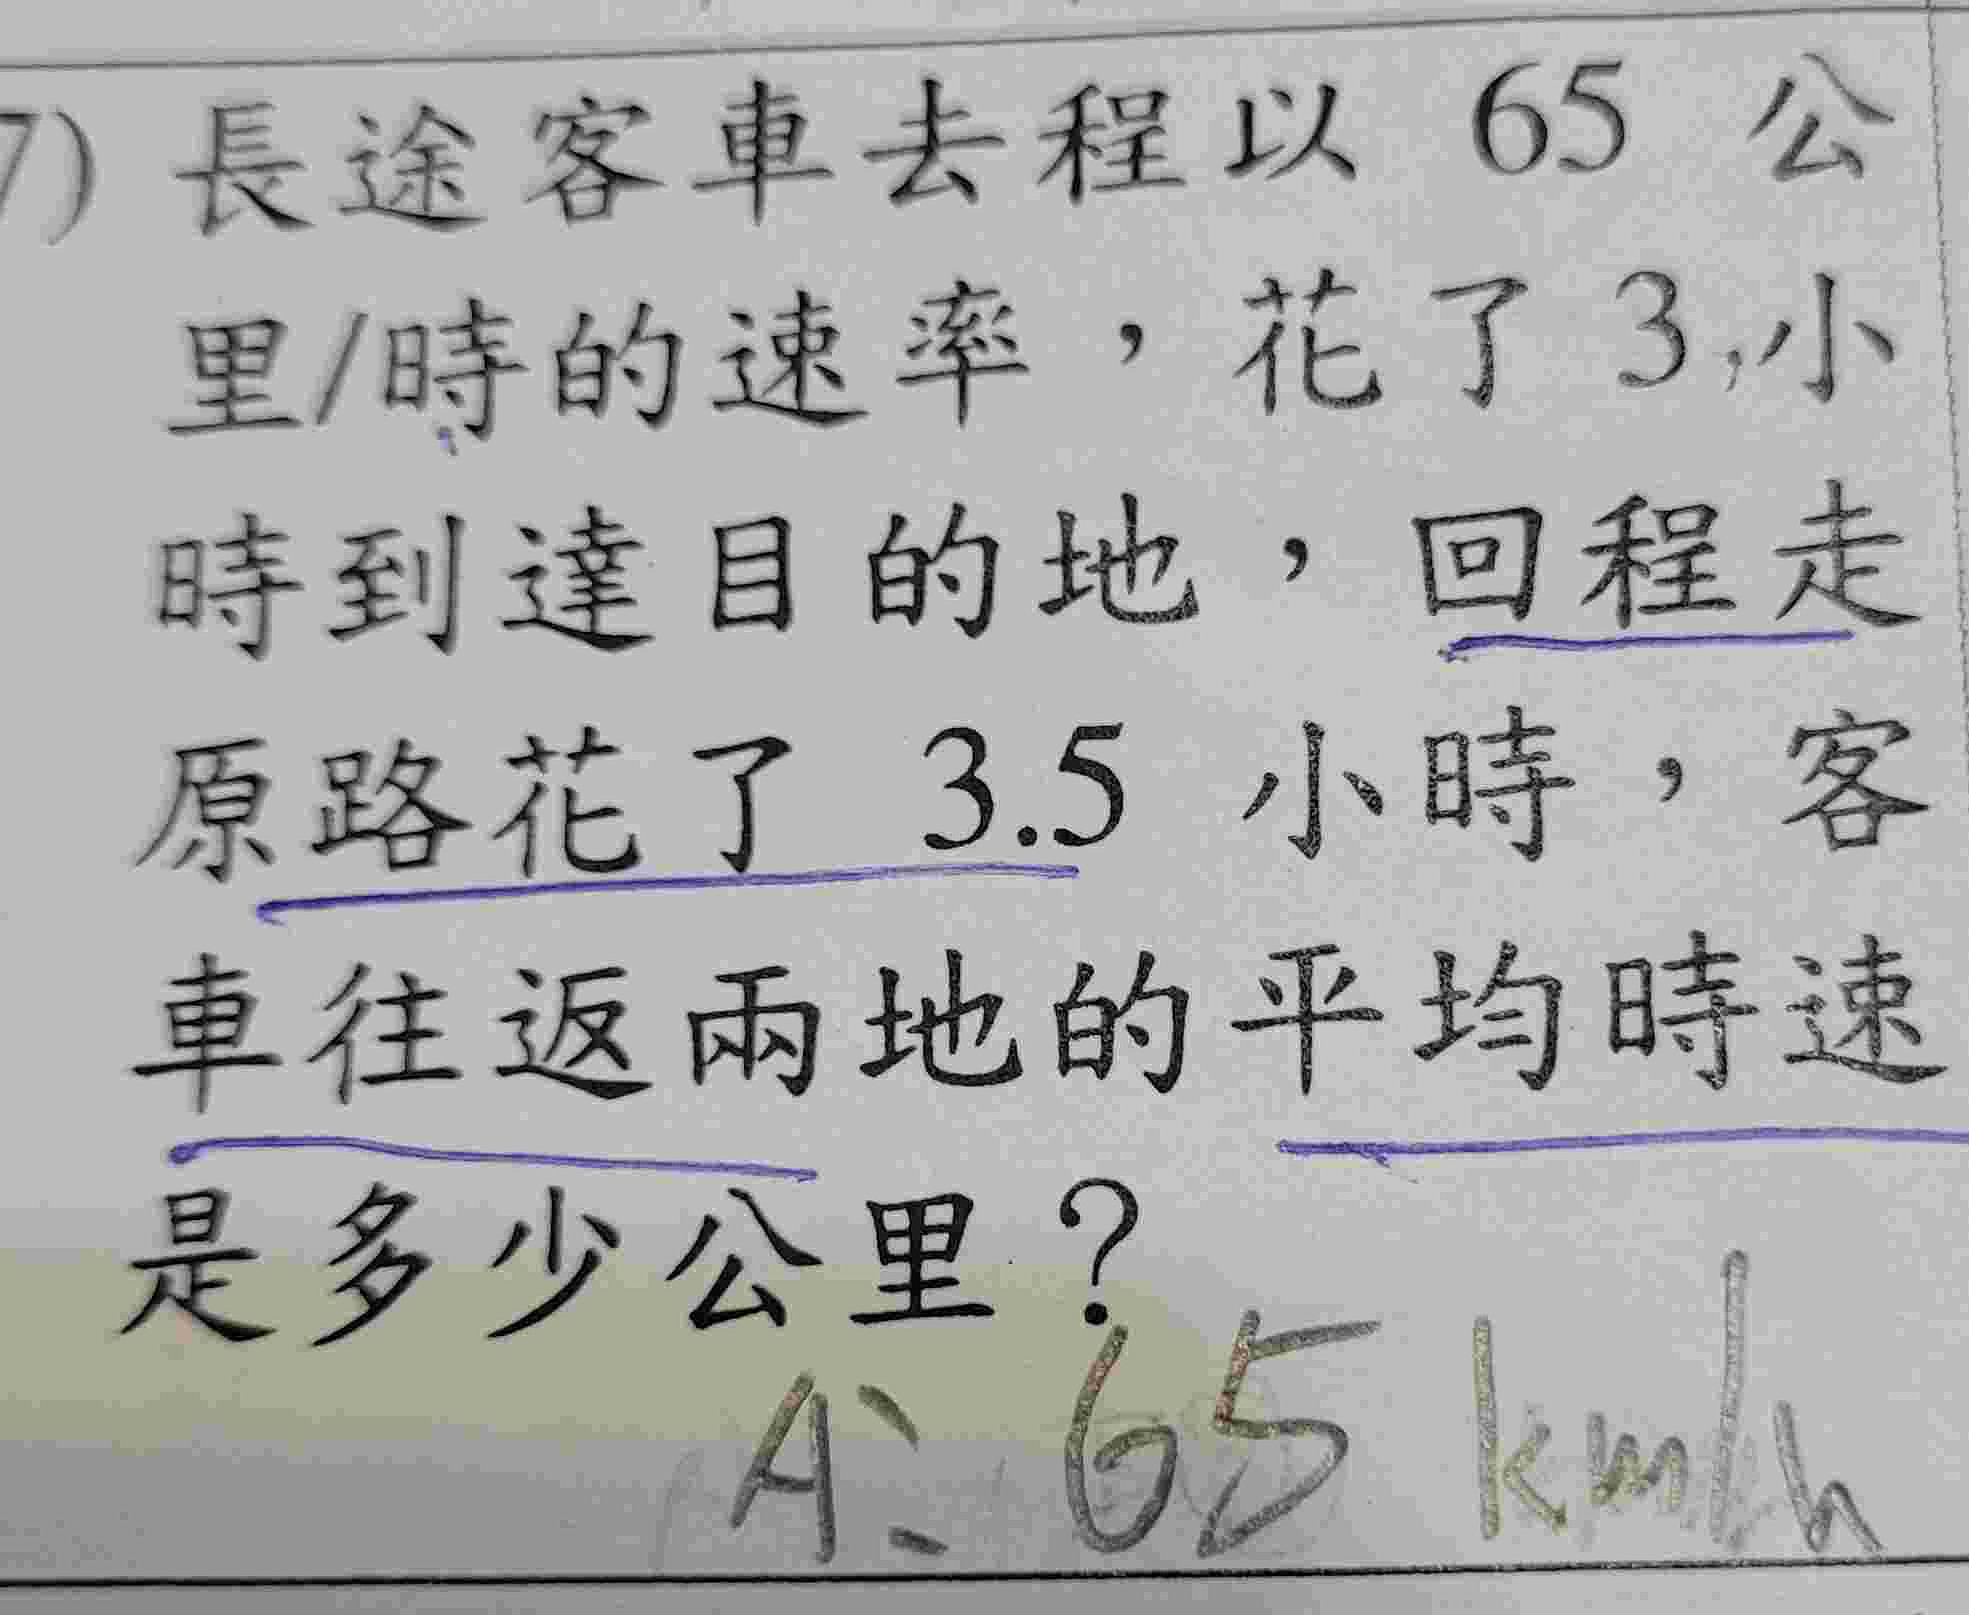 7) 長途客車去程以 65 公
里/時的速率，花了 3 小
時到達目的地，回程走
原路花了 3.5 小時，客
車往返兩地的平均時速
是多少公里？
A: 65 km/h